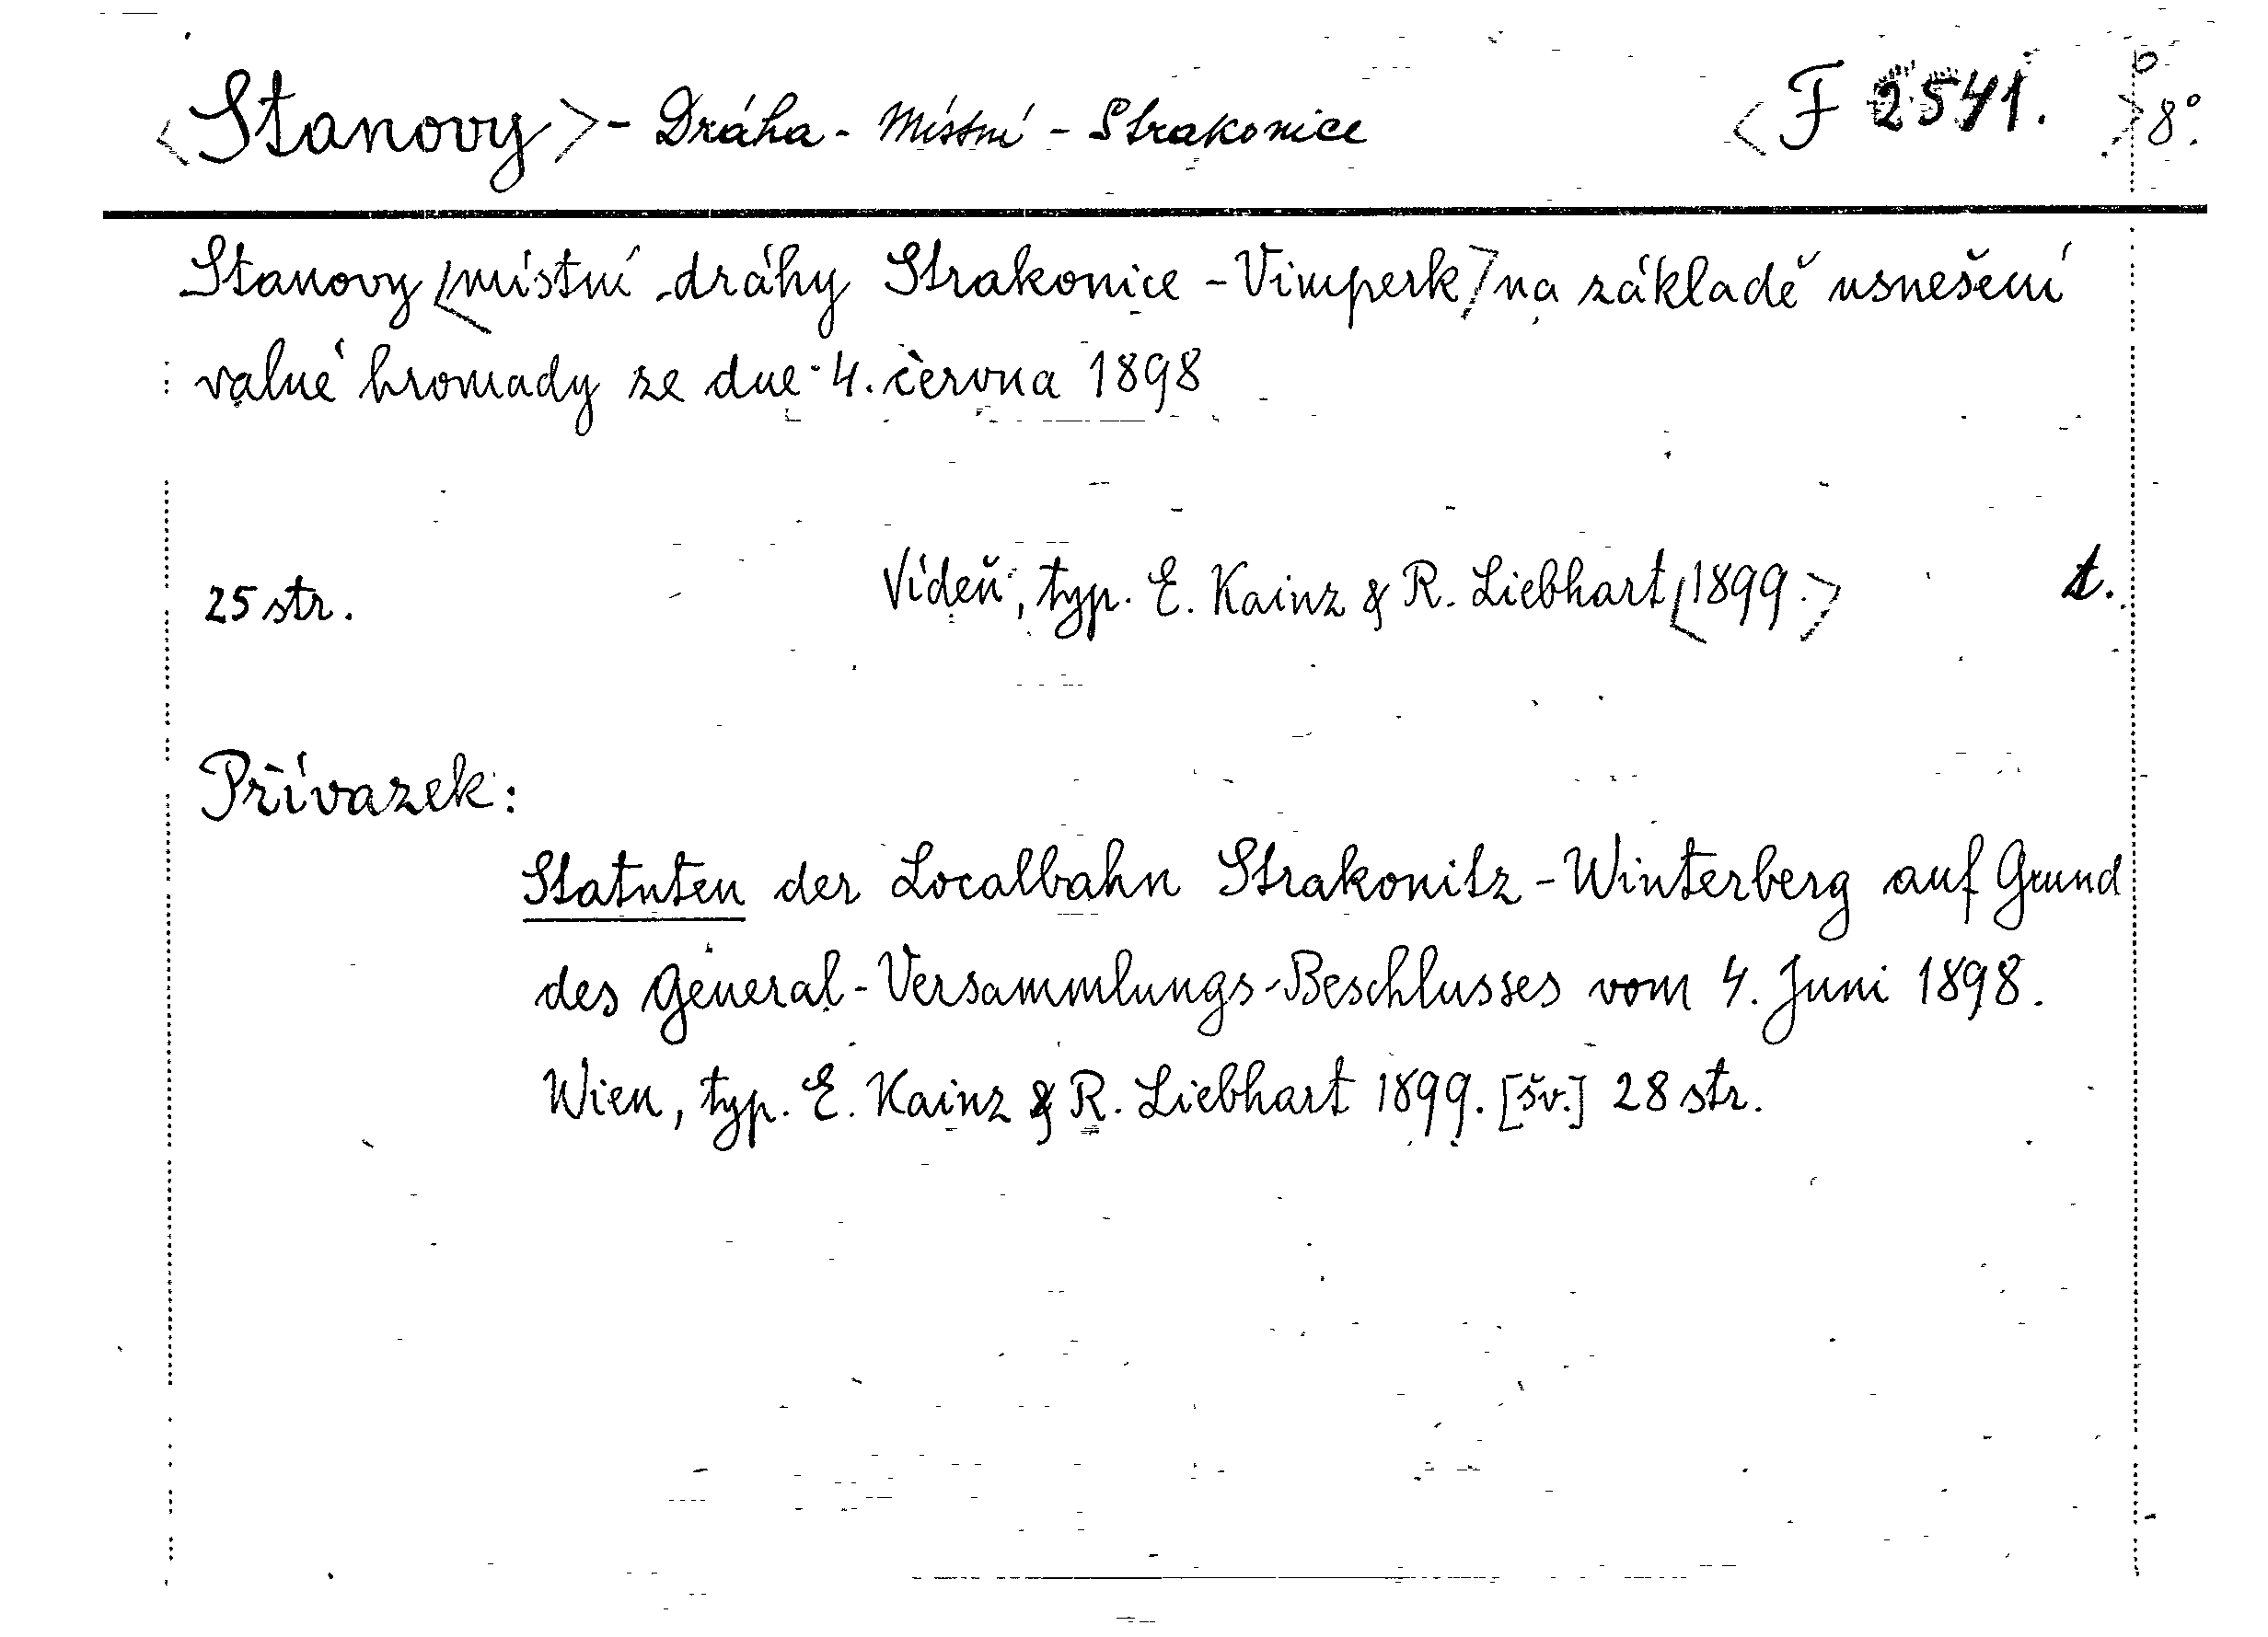 <Stanovy> - Dráha - Místní - Strakonice <F 2541.> 8°.
Stanovy <místní dráhy Strakonice - Vimperk> na základě usnešení
valné hromady ze dne 4. června 1898
25 str. Vídeň, typ. E. Kainz & R. Liebhart <1899.> t.
Přívazek:
Statuten der Localbahn Strakonitz - Winterberg auf Grund
des General - Versammlungs - Beschlusses vom 4. Juni 1898.
Wien, typ. E. Kainz & R. Liebhart 1899. [šv.] 28 str.